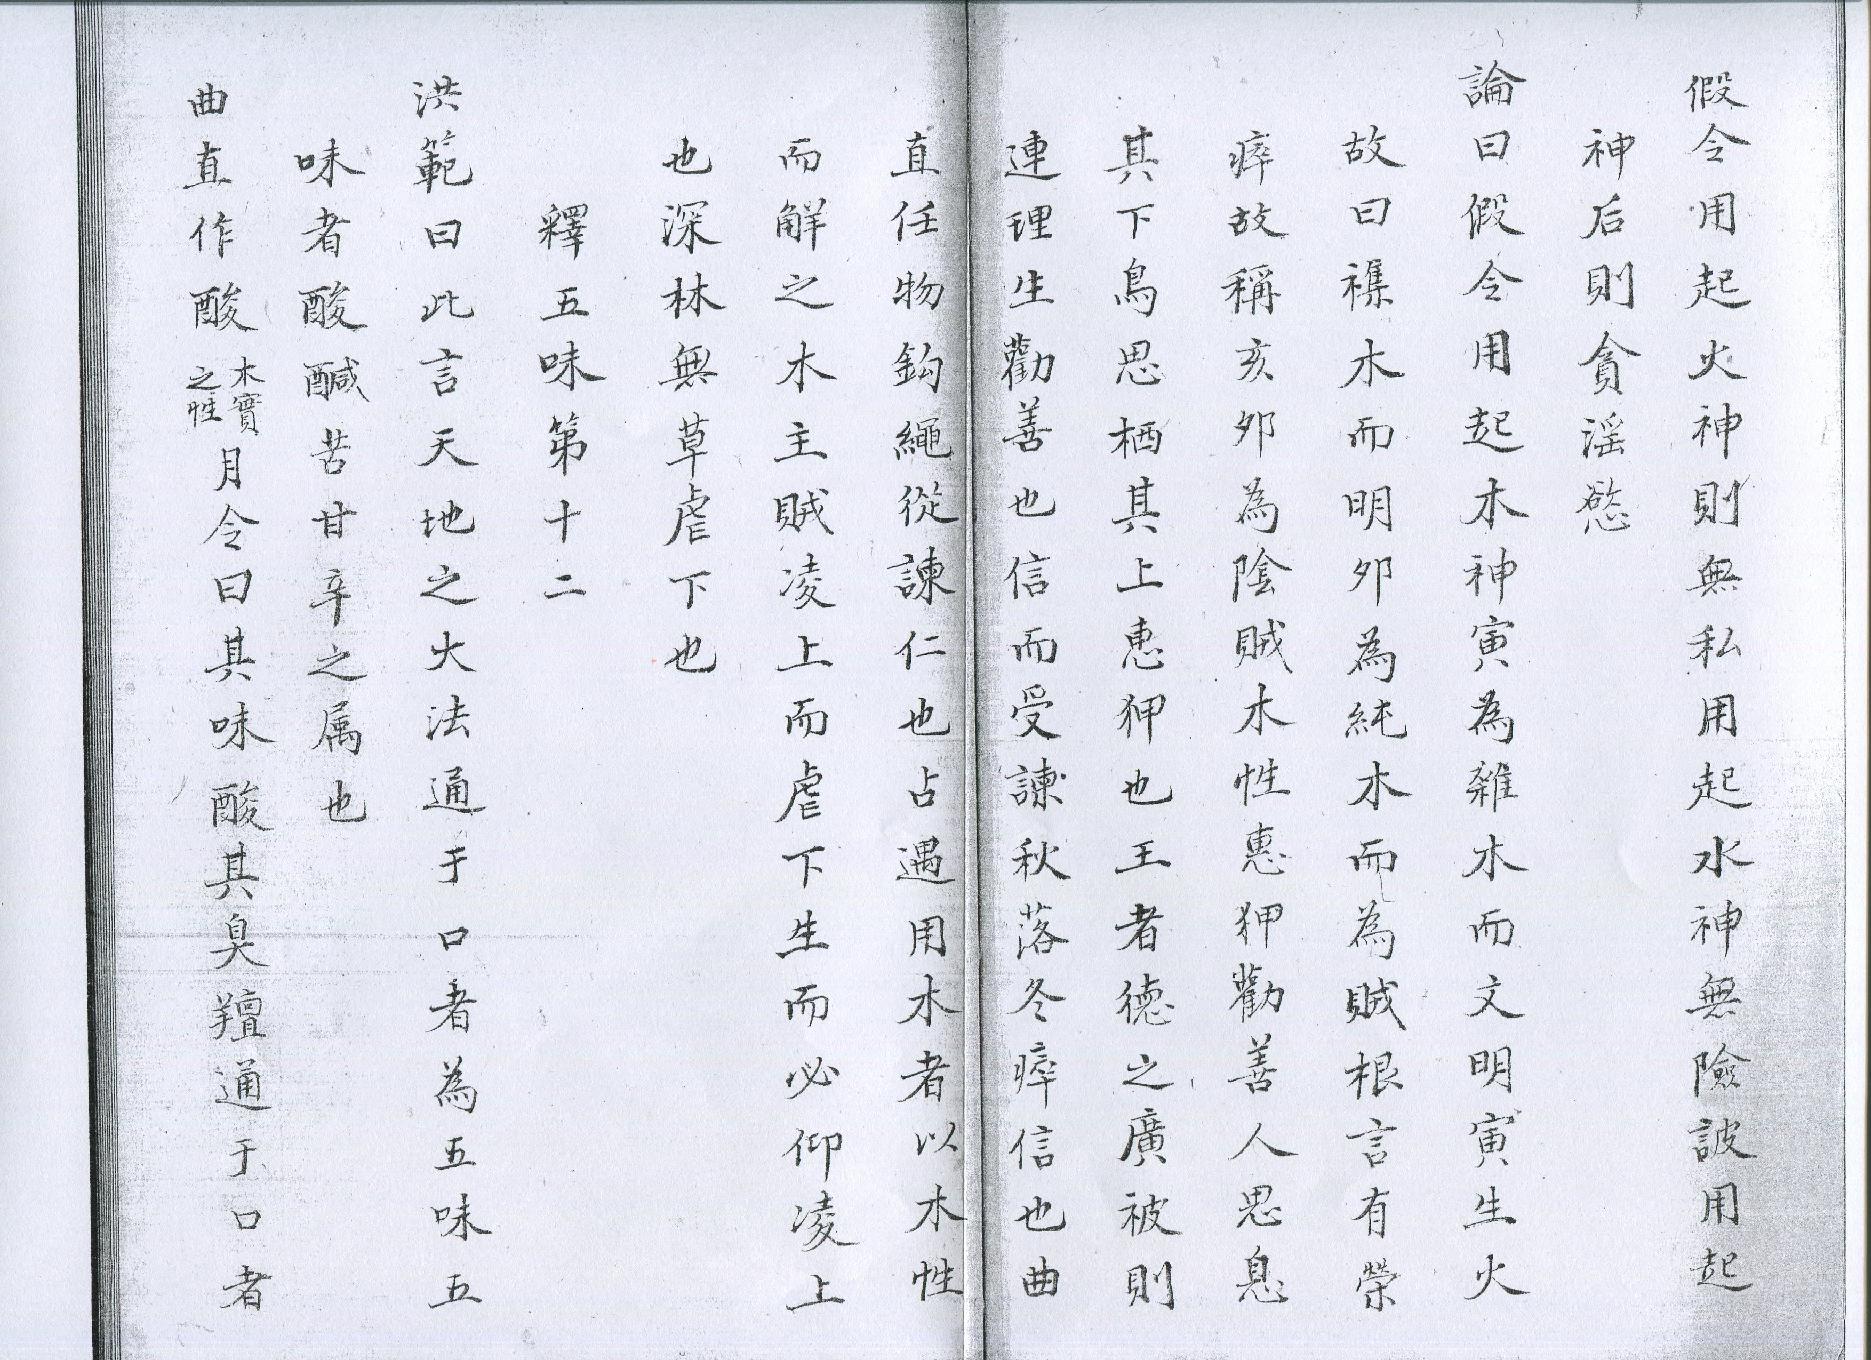 假令用起火神則無私用起水神無險詖用起
神后則貪滛慾
論曰假令用起木神寅為雜木而文明寅生火
故曰襍木而明夘為純木而為賊根言有榮
瘁故稱亥夘為陰賊木性惠狎勸善人思息
其下鳥思栖其上惠狎也王者德之廣被則
連理生勸善也信而受諫秋落冬瘁信也曲
直任物鈎繩從諫仁也占遇用木者以木性
而觧之木主賊凌上而虐下生而必仰凌上
也深林無草虐下也
釋五味第十二
洪範曰此言天地之大法通于口者為五味五
味者酸醎苦甘辛之属也
曲直作酸木實之性月令曰其味酸其臭羶通于口者